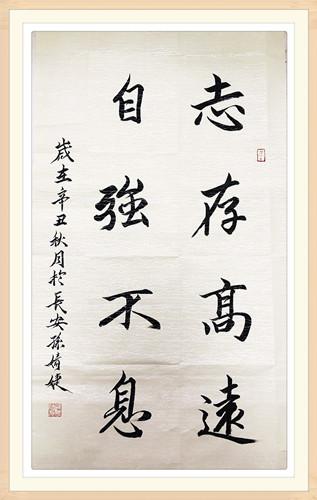 志存高遠
自強不息
歲在辛丑秋月於長安孫婧婕